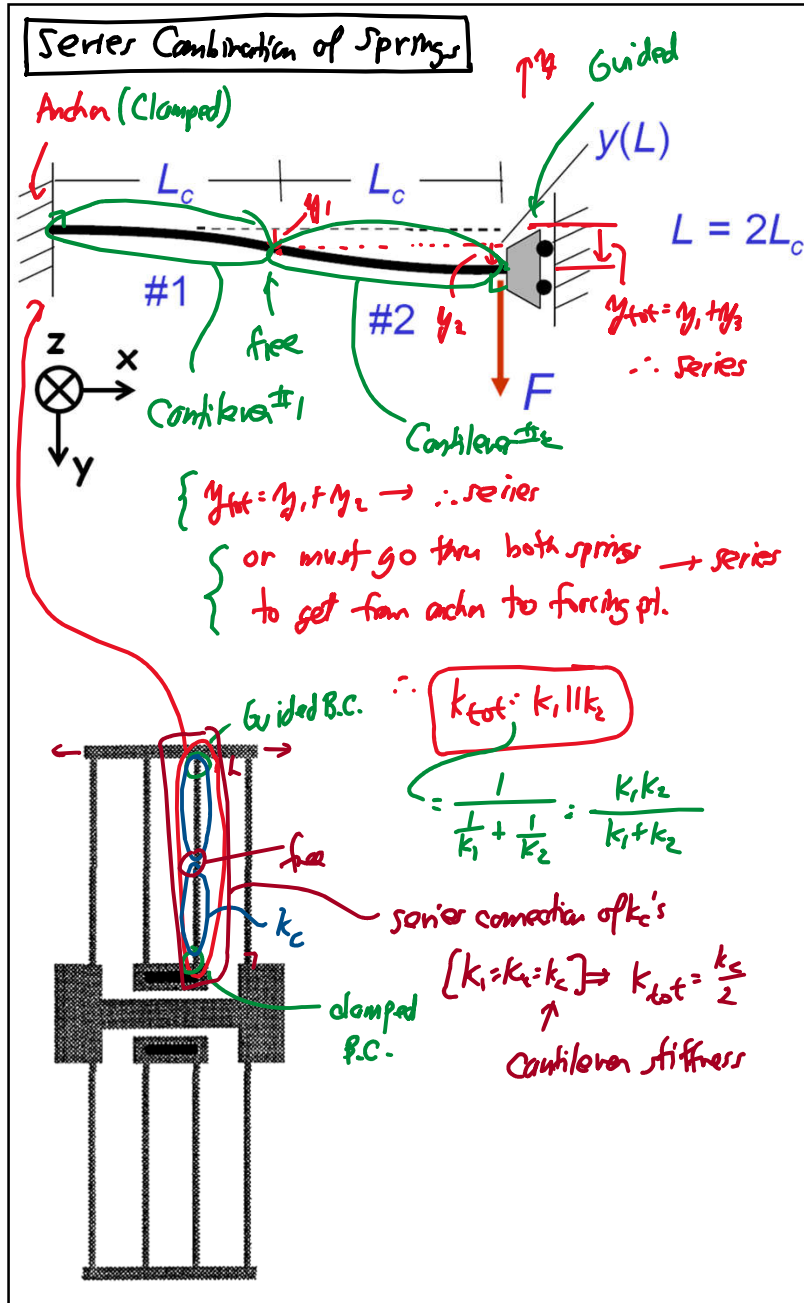 Series Combination of Springs
Anchor (Clamped)
↑y
Guided
L_c
L_c
y(L)
y_1
L = 2L_c
#1
#2
y_2
free
y_tot = y_1 + y_3
∴ series
z
x
y
F
Cantilever #1
Cantilever #2
y_tot = y_1 + y_2 → ∴ series
or must go thru both springs → series
to get from anchor to forcing pt.
Guided B.C.
∴ k_tot = k_1 || k_2
= 1 / (1/k_1 + 1/k_2) = k_1 k_2 / (k_1 + k_2)
free
k_c
series connection of k_c's
[k_1 = k_2 = k_c] ⇒ k_tot = k_c / 2
clamped
B.C.
Cantilever stiffness